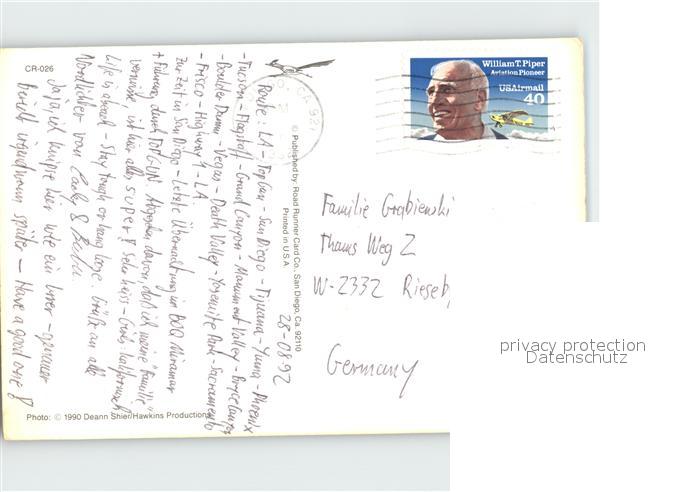 CR-026
28-08-92
Route: LA - TopGun - San Diego - Tijuana - Yuma - Phoenix
- Tucson - Flagstaff - Grand Canyon - Monument Valley - Bryce Canyon
- Boulder Damm - Vegas - Death Valley - Yosemite Park - Sacramento
- Frisco - Highway 1 - LA.
Zur Zeit in San Diego - Letzte Übernachtung in BOQ Miramar
+ Führung durch TOPGUN. Abgesehen davon, daß ich meine "Familie"
vermisse ist hier alles super! Sehr heiss - Girls California
Life is a beach - Stay tough or hang loose. Grüße an alle
Nordlichter von
Jaja, ich knipse hier wie ein Irrer - genauer
Bericht irgendwann später - Have a good one!
Photo: © 1990 Deann Shier/Hawkins Productions
© Published by: Road Runner Card Co., San Diego, Ca. 92110
Printed in U.S.A.
CA 921
William T. Piper
Aviation Pioneer
USAirmail
40
Familie Grabienski
Thams Weg 2
W-2332 Rieseb
Germany
privacy protection
Datenschutz